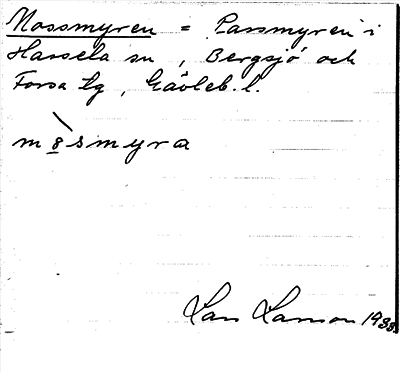 Mossmyren = Parsmyren i
Hassela sn, Bergsjö och
Forsa tg, Gävleb. l.
m8smyra
Lars Larsson 1933